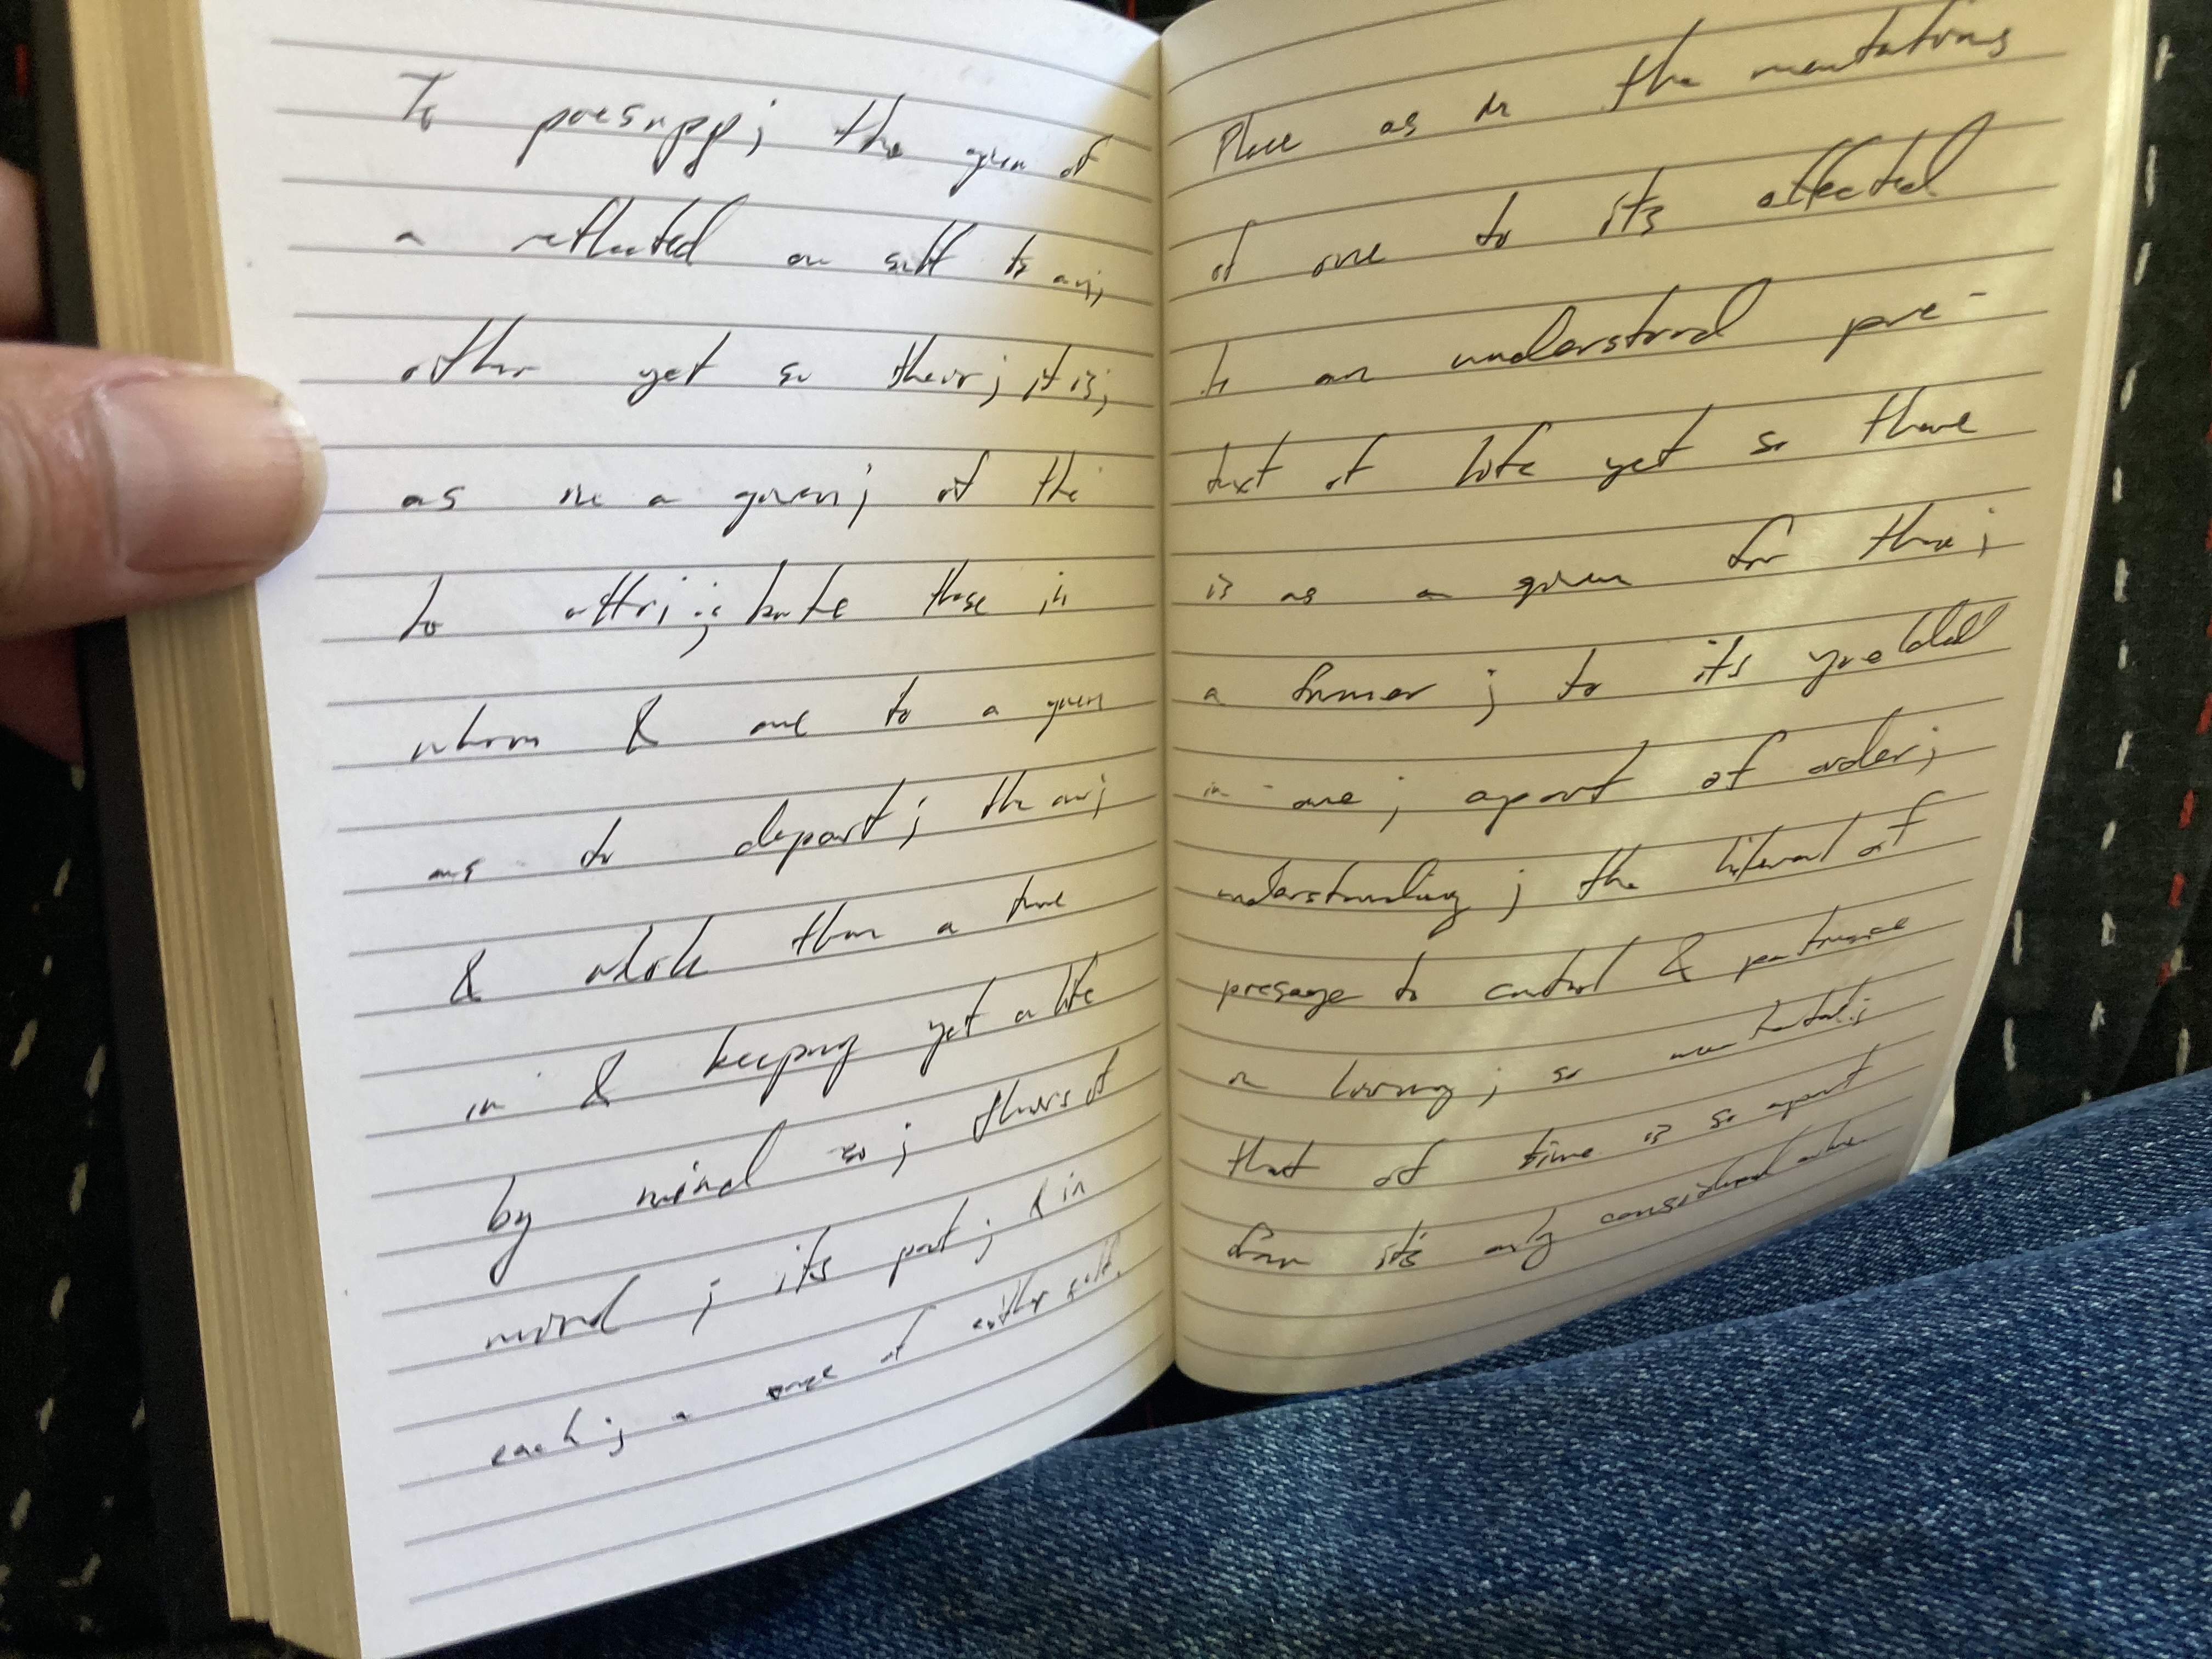 To presupp; the given of
a reflected on self to an;
other yet so their; it is;
as in a given; of the
to attri; bute those in
whom & one to a given
as to depart; the an;
& whole than a true
in & keeping yet a life
by mind so; theirs of
mind; its part; & in
each; a of either self.
Place as in the mentations
of one to its affected
to an understood pre-
text of life yet so there
is as a given for the;
a former; to its
in one; apart of order;
understanding; the literal of
presage to control &
in loving; so
that of time is so apart
from its only considered